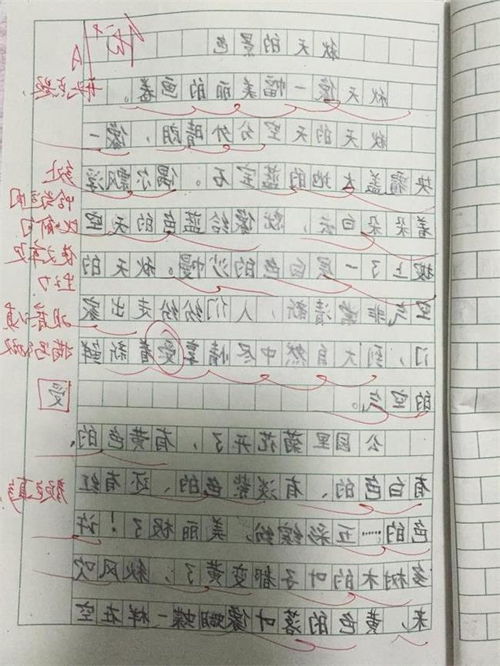 秋天的景色
秋天像一幅美丽的画卷。
秋天的天空分外晴朗，像一
块覆盖大地的蓝宝石。偶尔飘浮
着朵朵白云，就像给蓝色的天空
披上了一层白色的沙幔。秋天的
空气非常清新，人们纷纷走出家
门，到大自然中尽情享受着新鲜
的空气。
受
公园里菊花开了，有黄色的、
有白色的、有淡紫色的、还有红
色的……五彩缤纷，美丽极了！许
多树木的叶子都变黄了；秋风吹
来，黄色的落叶像蝴蝶一样在空